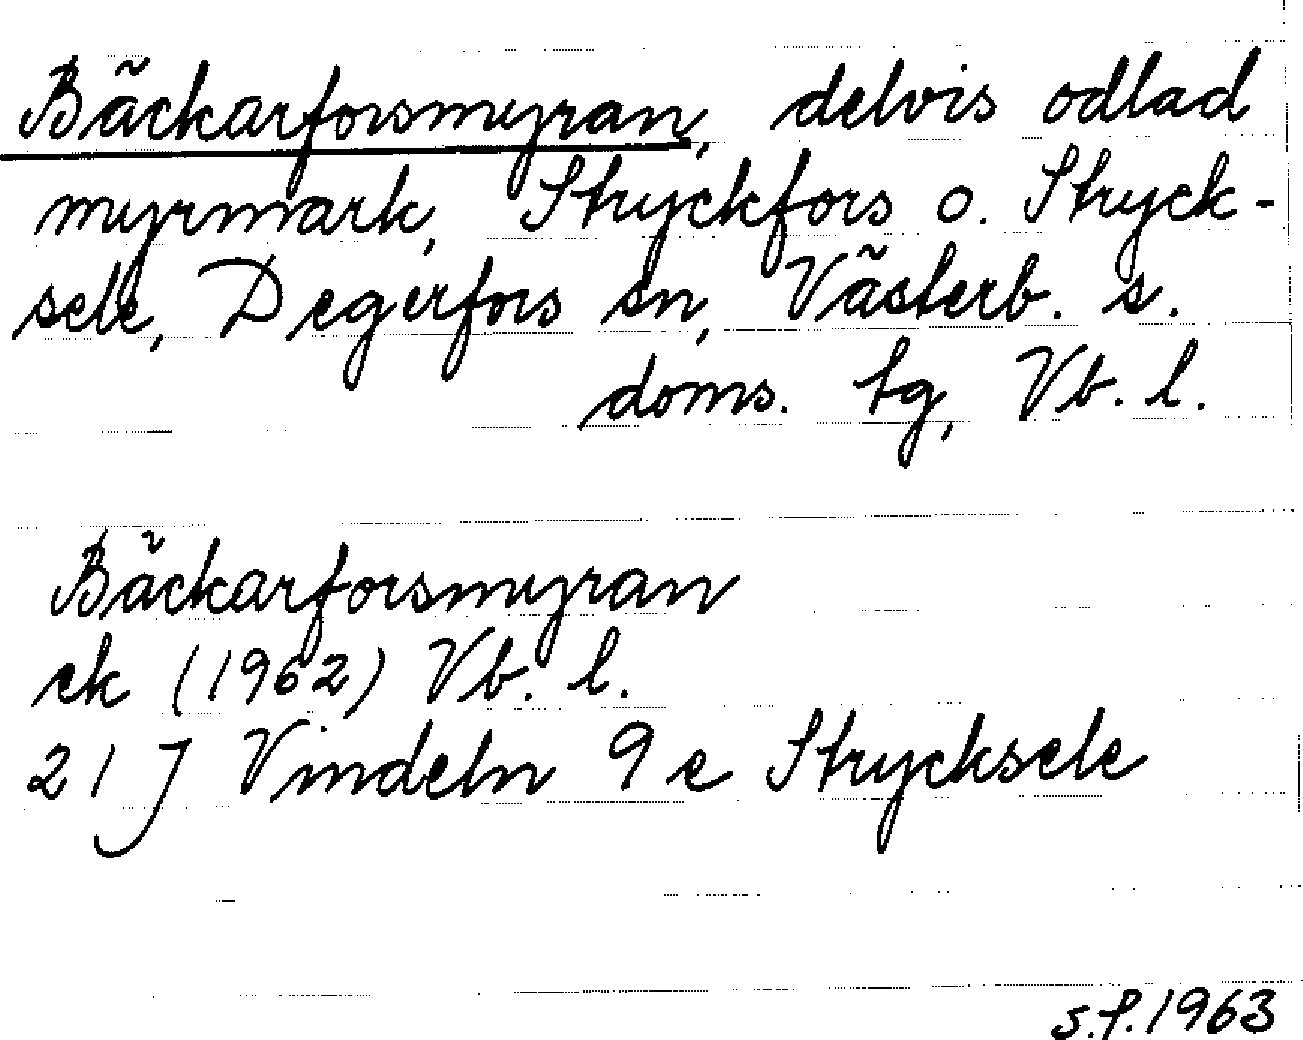 Bäckarforsmyran, delvis odlad
myrmark, Stryckfors o. Stryck-
sele, Degerfors sn, Västerb. s.
doms. tg, Vb. l.
Bäckarforsmyran
ek (1962) Vb. l.
21 J Vindeln 9 e Strycksele
S.F. 1963